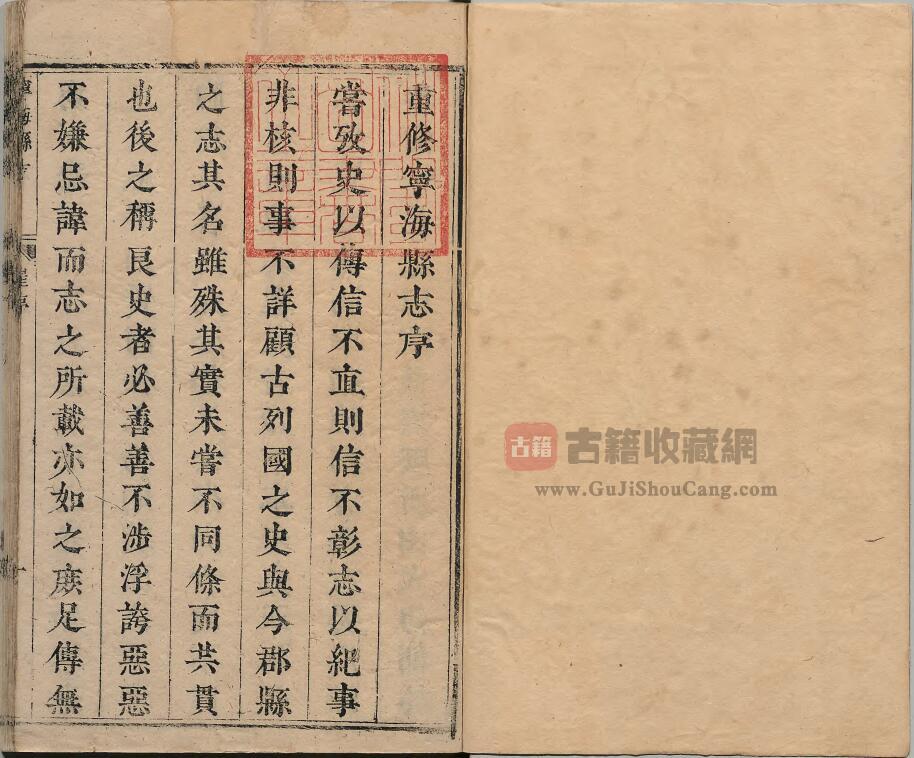 重修寧海縣志序
嘗攷史以傳信不直則信不彰志以紀事
非核則事不詳顧古列國之史與今郡縣
之志其名雖殊其實未嘗不同條而共貫
也後之稱良史者必善善不涉浮誇惡惡
不嫌忌諱而志之所載亦如之庶足傳無
古籍
古籍收藏網
www.GuJiShouCang.com